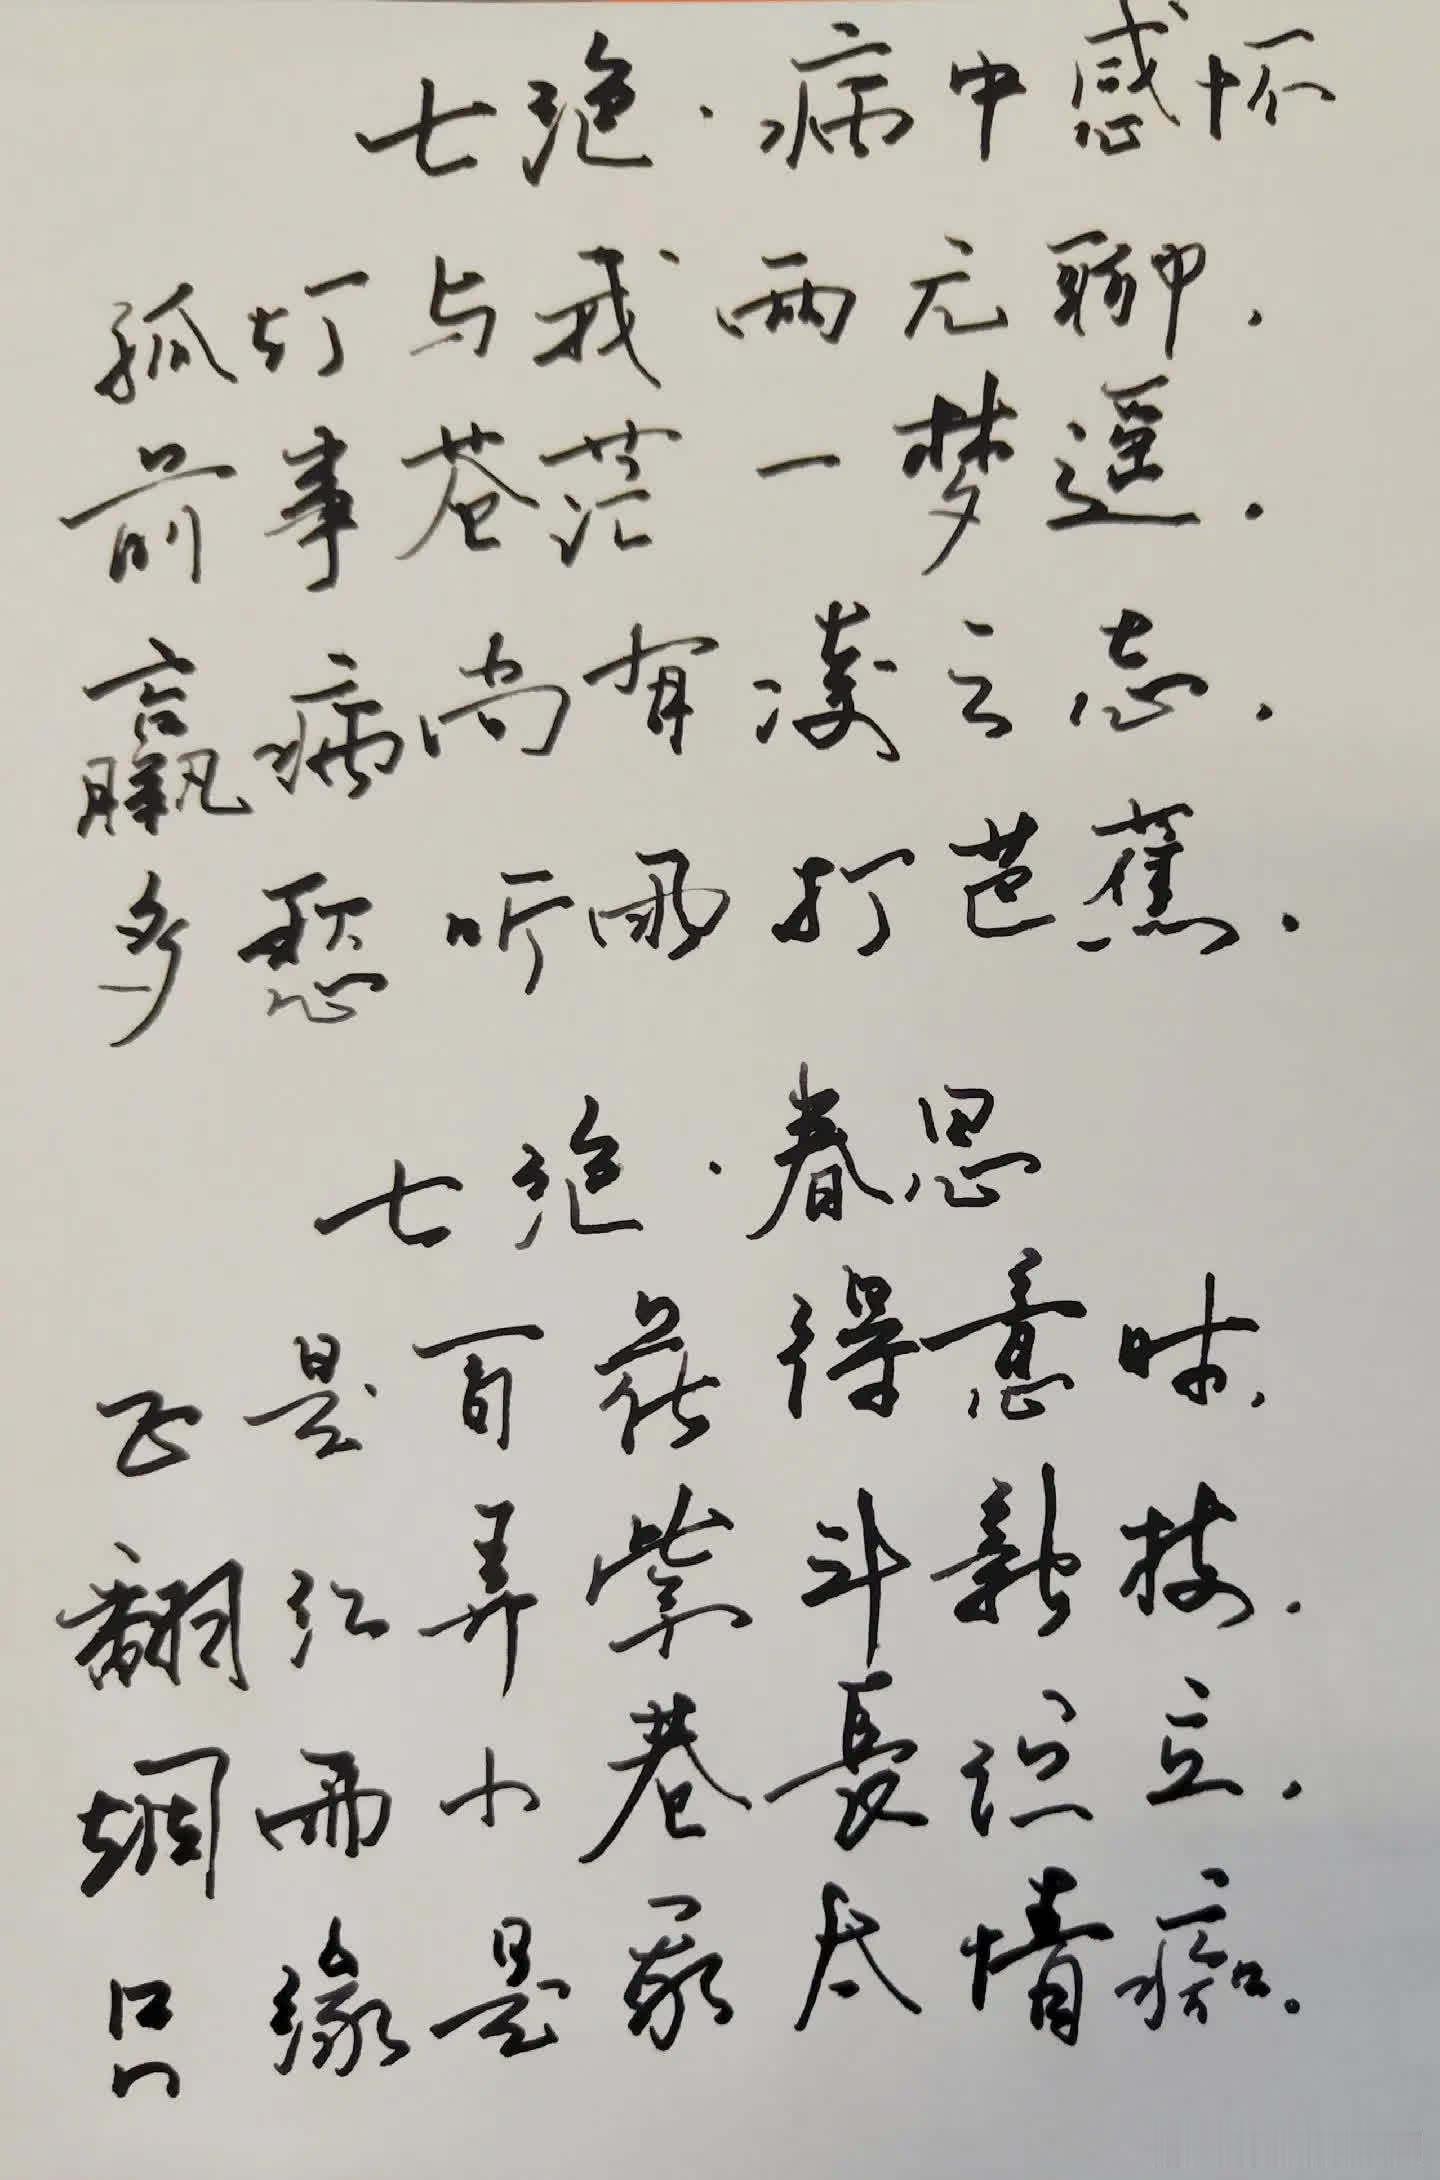 七绝·病中感怀
孤灯与我两无聊.
前事苍茫一梦遥.
羸病尚有凌云志.
多愁听雨打芭蕉.
七绝·春思
正是百花得意时.
翻红弄紫斗新枝.
烟雨小巷長伫立.
只缘是家太情痴。